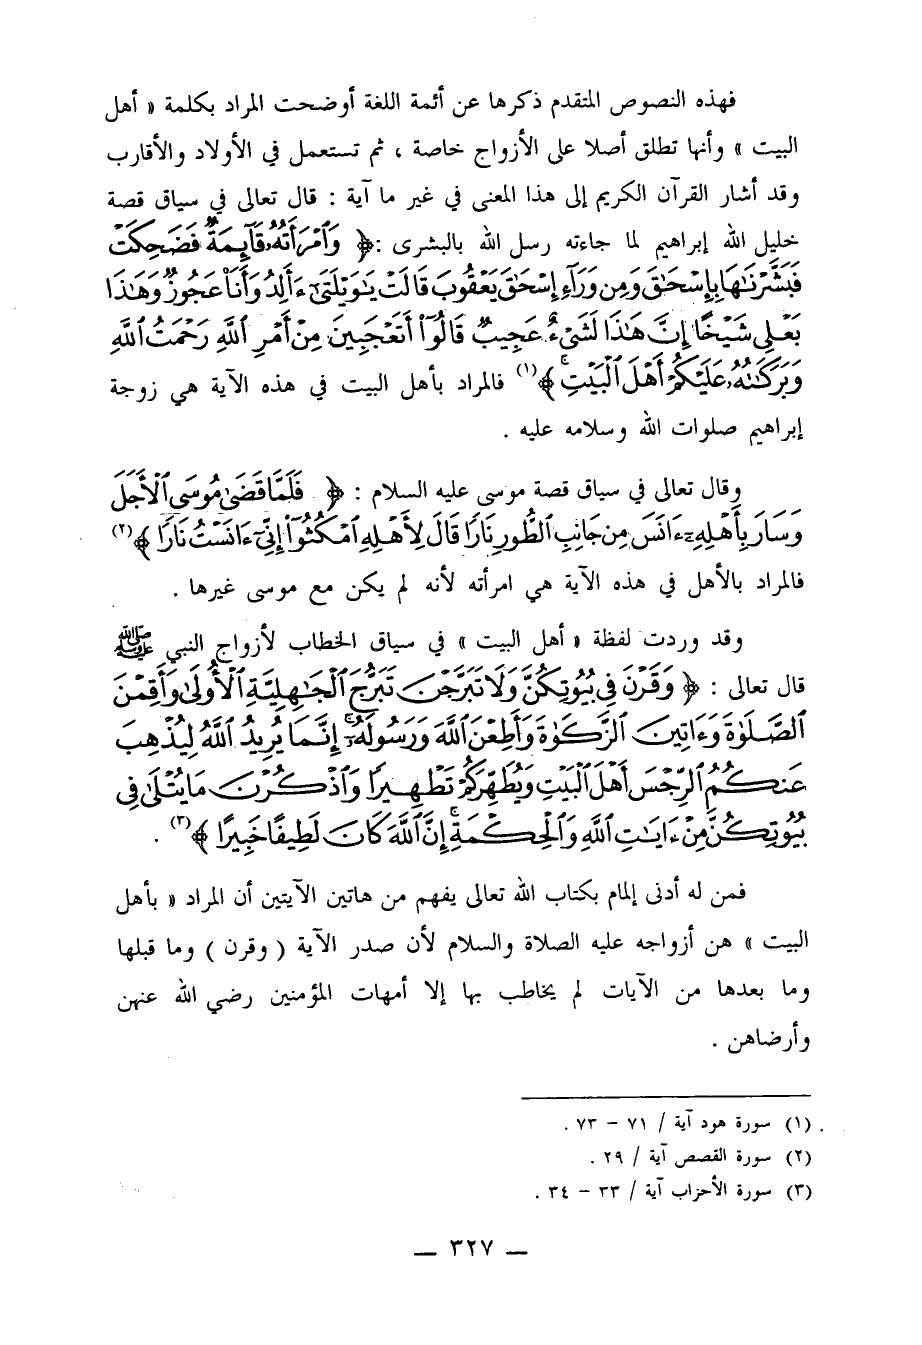 فهذه النصوص المتقدم ذكرها عن أئمة اللغة أوضحت المراد بكلمة « أهل
البيت » وأنها تطلق أصلا على الأزواج خاصة ، ثم تستعمل في الأولاد والأقارب
وقد أشار القرآن الكريم إلى هذا المعنى في غير ما آية : قال تعالى في سياق قصة
خليل الله إبراهيم لما جاءته رسل الله بالبشرى :﴿ وَٱمْرَأَتُهُۥ قَآئِمَةٌ فَضَحِكَتْ
فَبَشَّرْنَٰهَا بِإِسْحَٰقَ وَمِن وَرَآءِ إِسْحَٰقَ يَعْقُوبَ قَالَتْ يَٰوَيْلَتَىٰٓ ءَأَلِدُ وَأَنَا۠ عَجُوزٌ وَهَٰذَا
بَعْلِى شَيْخًا إِنَّ هَٰذَا لَشَىْءٌ عَجِيبٌ قَالُوٓا۟ أَتَعْجَبِينَ مِنْ أَمْرِ ٱللَّهِ رَحْمَتُ ٱللَّهِ
وَبَرَكَٰتُهُۥ عَلَيْكُمْ أَهْلَ ٱلْبَيْتِ ۚ ﴾(١) فالمراد بأهل البيت في هذه الآية هي زوجة
إبراهيم صلوات الله وسلامه عليه .
وقال تعالى في سياق قصة موسى عليه السلام : ﴿ فَلَمَّا قَضَىٰ مُوسَى ٱلْأَجَلَ
وَسَارَ بِأَهْلِهِۦٓ ءَانَسَ مِن جَانِبِ ٱلطُّورِ نَارًا قَالَ لِأَهْلِهِ ٱمْكُثُوٓا۟ إِنِّىٓ ءَانَسْتُ نَارًا ﴾(٢)
فالمراد بالأهل في هذه الآية هي امرأته لأنه لم يكن مع موسى غيرها .
وقد وردت لفظة « أهل البيت » في سياق الخطاب لأزواج النبي ﷺ
قال تعالى : ﴿ وَقَرْنَ فِى بُيُوتِكُنَّ وَلَا تَبَرَّجْنَ تَبَرُّجَ ٱلْجَٰهِلِيَّةِ ٱلْأُولَىٰ وَأَقِمْنَ
ٱلصَّلَوٰةَ وَءَاتِينَ ٱلزَّكَوٰةَ وَأَطِعْنَ ٱللَّهَ وَرَسُولَهُۥٓ ۚ إِنَّمَا يُرِيدُ ٱللَّهُ لِيُذْهِبَ
عَنكُمُ ٱلرِّجْسَ أَهْلَ ٱلْبَيْتِ وَيُطَهِّرَكُمْ تَطْهِيرًا وَٱذْكُرْنَ مَا يُتْلَىٰ فِى
بُيُوتِكُنَّ مِنْ ءَايَٰتِ ٱللَّهِ وَٱلْحِكْمَةِ ۚ إِنَّ ٱللَّهَ كَانَ لَطِيفًا خَبِيرًا ﴾(٣) .
فمن له أدنى إلمام بكتاب الله تعالى يفهم من هاتين الآيتين أن المراد « بأهل
البيت » هن أزواجه عليه الصلاة والسلام لأن صدر الآية ( وقرن ) وما قبلها
وما بعدها من الآيات لم يخاطب بها إلا أمهات المؤمنين رضي الله عنهن
وأرضاهن .
(١) سورة هود آية / ٧١ – ٧٣ .
(٢) سورة القصص آية / ٢٩ .
(٣) سورة الأحزاب آية / ٣٣ – ٣٤ .
— ٣٢٧ —